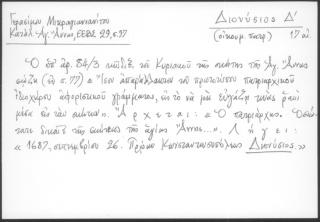 Γερασίμου Μικραγιαννανίτου
Κατάλ. Ἁγ. Ἄννης, ΕΕΒΣ 29, σ. 97
Διονύσιος Δ΄
(οἰκουμ. πατρ.) 17 αἰ.
Ὁ ὑπ' ἀρ. 84/3 κῶδιξ τοῦ Κυριακοῦ τῆς σκήτης τῆς Ἁγ. Ἄννης
σῴζει (σ. 77) «Ἴσον ἀπαράλλακτον τοῦ πρωτοτύπου πατριαρχικοῦ
ἰδιοχείρου ἀφοριστικοῦ γράμματος, εἰς τὸ νὰ μὴν
μέσα εἰς τὴν σκήτην». Ἄρχεται: «Ὁ πατριάρχης. Ὁσιώ-
τατε δικαῖε τῆς σκήτεως τῆς ἁγίας Ἄννης...». Λήγει:
«1687, σεπτεμβρίου 26. Πρώην Κωνσταντινουπόλεως Διονύσιος.»